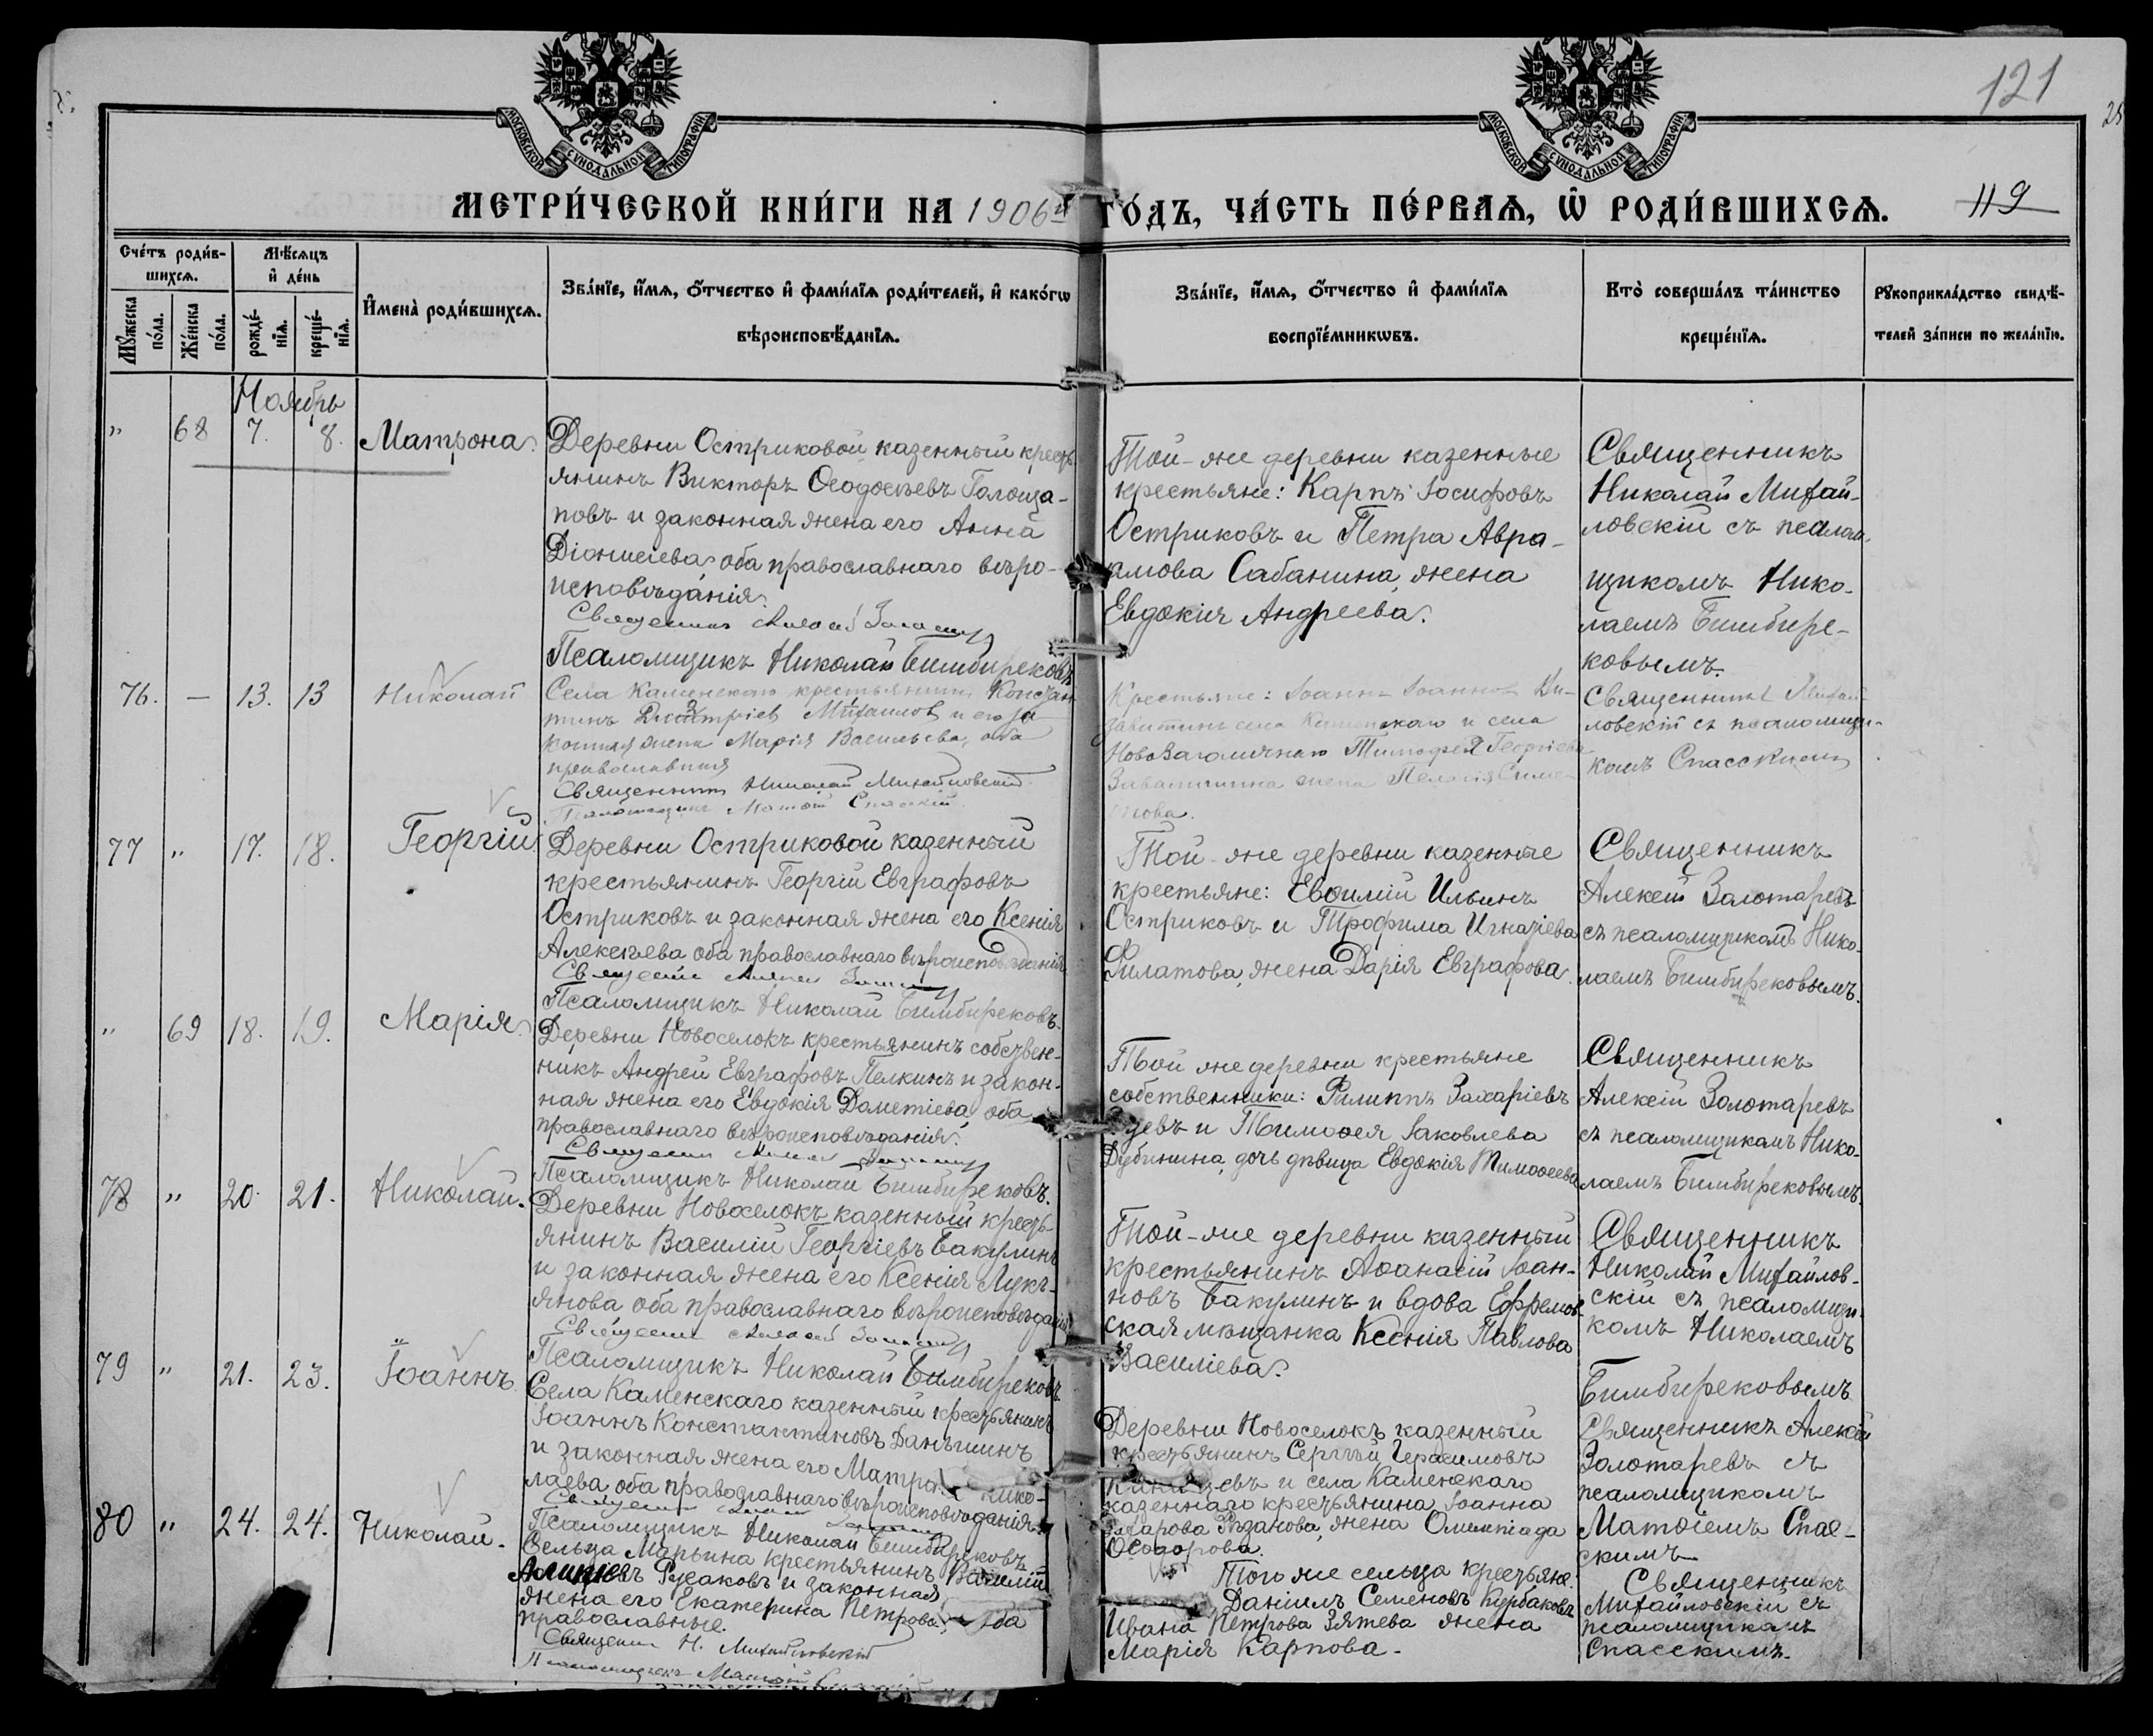 121
25
МОСКОВСКОЙ СѴНОДАЛЬНОЙ ТИПОГРАФІИ
МОСКОВСКОЙ СѴНОДАЛЬНОЙ ТИПОГРАФІИ
МЕТРИ́ЧЕСКОЙ КНИ́ГИ НА 1906й ГО́ДЪ, ЧА́СТЬ ПЕ́РВАЯ, Ѡ РОДИ́ВШИХСѦ.
119
Сче́тъ роди́в-
шихсѧ.
Мѣ́сѧцъ
и҆ де́нь
Мꙋ́жеска по́ла.
Же́нска по́ла.
рожде́-
нїѧ.
креще́-
нїѧ.
И҆мена̀ роди́вшихсѧ.
Зва́нїе, и҆́мѧ, ѻ҆́тчество и҆ фами́лїѧ роди́телей, и҆ како́гѡ
вѣроисповѣ́данїѧ.
Зва́нїе, и҆́мѧ, ѻ҆́тчество и҆ фами́лїѧ
воспрїе́мникѡвъ.
Кто̀ соверша́лъ та́инство
креще́нїѧ.
Рꙋкоприкла́дство свидѣ́-
телей за́писи по жела́нїю.
Ноябрь
" 68 7. 8. Матрона.
Деревни Остриковой казенный кресть
янинъ Викторъ Ѳеодосіевъ Голоща-
повъ и законная жена его Анна
Діонисіева, оба православнаго вѣро-
исповѣданія.
Священникъ Алексей Золотарев
Псаломщикъ Николай Бимбирековъ
Той-же деревни казенные
крестьяне: Карпъ Іосифовъ
Остриковъ и Петра Авра-
амова Сабанина, жена
Евдокія Андреева.
Священникъ
Николай Михай-
ловскій съ псалом
щикомъ Нико-
лаемъ Бимбире-
ковымъ.
76. — 13. 13 Николай
Села Каменскаго крестьянинъ Констан
тинъ Димитріев Михаилов и его за
конная жена Марія Васильева, оба
православныя
Священникъ Николай Михайловский
Псаломщикъ Матѳій Спасскій
Крестьяне: Іоаннъ Іоаннов
села Каменскаго и села
Тимофея Георгіева
жена Пелагія
нова.
Священникъ Михай
ловскій съ псаломщи-
комъ Спасскимъ
77 " 17. 18. Георгій.
Деревни Остриковой казенный
крестьянинъ Георгій Евграфовъ
Остриковъ и законная жена его Ксенія
Алексѣева оба православнаго вѣроисповѣданія
Священник Алексей Золотарев
Псаломщикъ Николай Бимбирековъ.
Той-же деревни казенные
крестьяне: Евѳимій Ильинъ
Остриковъ и Трофима Игнатіева
Филатова, жена Дарія Евграфова.
Священникъ
Алексій Золотаревъ
съ псаломщикомъ Нико-
лаемъ Бимбирековымъ.
" 69 18. 19. Марія.
Деревни Новоселокъ крестьянинъ собствен-
никъ Андрей Евграфовъ Пелкинъ и закон-
ная жена его Евдокія Дометіева, оба
православнаго вѣроисповѣданія.
Священник Алексей Золотарев
Псаломщикъ Николай Бимбирековъ.
Той же деревни крестьяне
собственники: Филиппъ Захаріевъ
и Тимоѳея Іаковлева
Дубинина, дочь дѣвица Евдокія Тимоѳеева
Священникъ
Алексій Золотаревъ
съ псаломщикомъ Нико-
лаемъ Бимбирековымъ
78 " 20. 21. Николай.
Деревни Новоселокъ казенный кресть-
янинъ Василій Георгіевъ Бакулинъ
и законная жена его Ксенія Лукъ-
янова оба православнаго вѣроисповѣданія
Священник Алексей Золотарев
Псаломщикъ Николай Бимбирековъ
Той-же деревни казенный
крестьянинъ Аѳанасій Іоан-
новъ Бакулинъ и вдова Ефремов
ская мѣщанка Ксенія Павлова
Василіева.
Священникъ
Николай Михайлов-
скій съ псаломщи-
комъ Николаемъ
Бимбирековымъ
79 " 21. 23. Іоаннъ
Села Каменскаго казенный крестьянинъ
Іоаннъ Константиновъ Даньшинъ
и законная жена его Матрона Нико-
лаева оба православнаго вѣроисповѣданія.
Священник
Псаломщикъ Николай Бимбирековъ
Деревни Новоселокъ казенный
крестьянинъ Сергѣй Герасимовъ
и села Каменскаго
казеннаго крестьянина Іоанна
Рязанова, жена Олимпіада
Ѳеодорова.
Священникъ Алексій
Золотаревъ съ
псаломщикомъ
Матѳіемъ Спас-
скимъ
80 " 24. 24. Николай.
Сельца Марьина крестьянинъ Василій
Русаковъ и законная
жена его Екатерина Петрова, оба
православные.
Священник Н. Михайловскій
Псаломщикъ Матѳій Спасскій
Того же сельца крестьяне:
Даніилъ Семеновъ Курбаковъ
Ивана Петрова Зятева жена
Марія Карпова.
Священникъ
Михайловскій съ
псаломщикомъ
Спасскимъ.